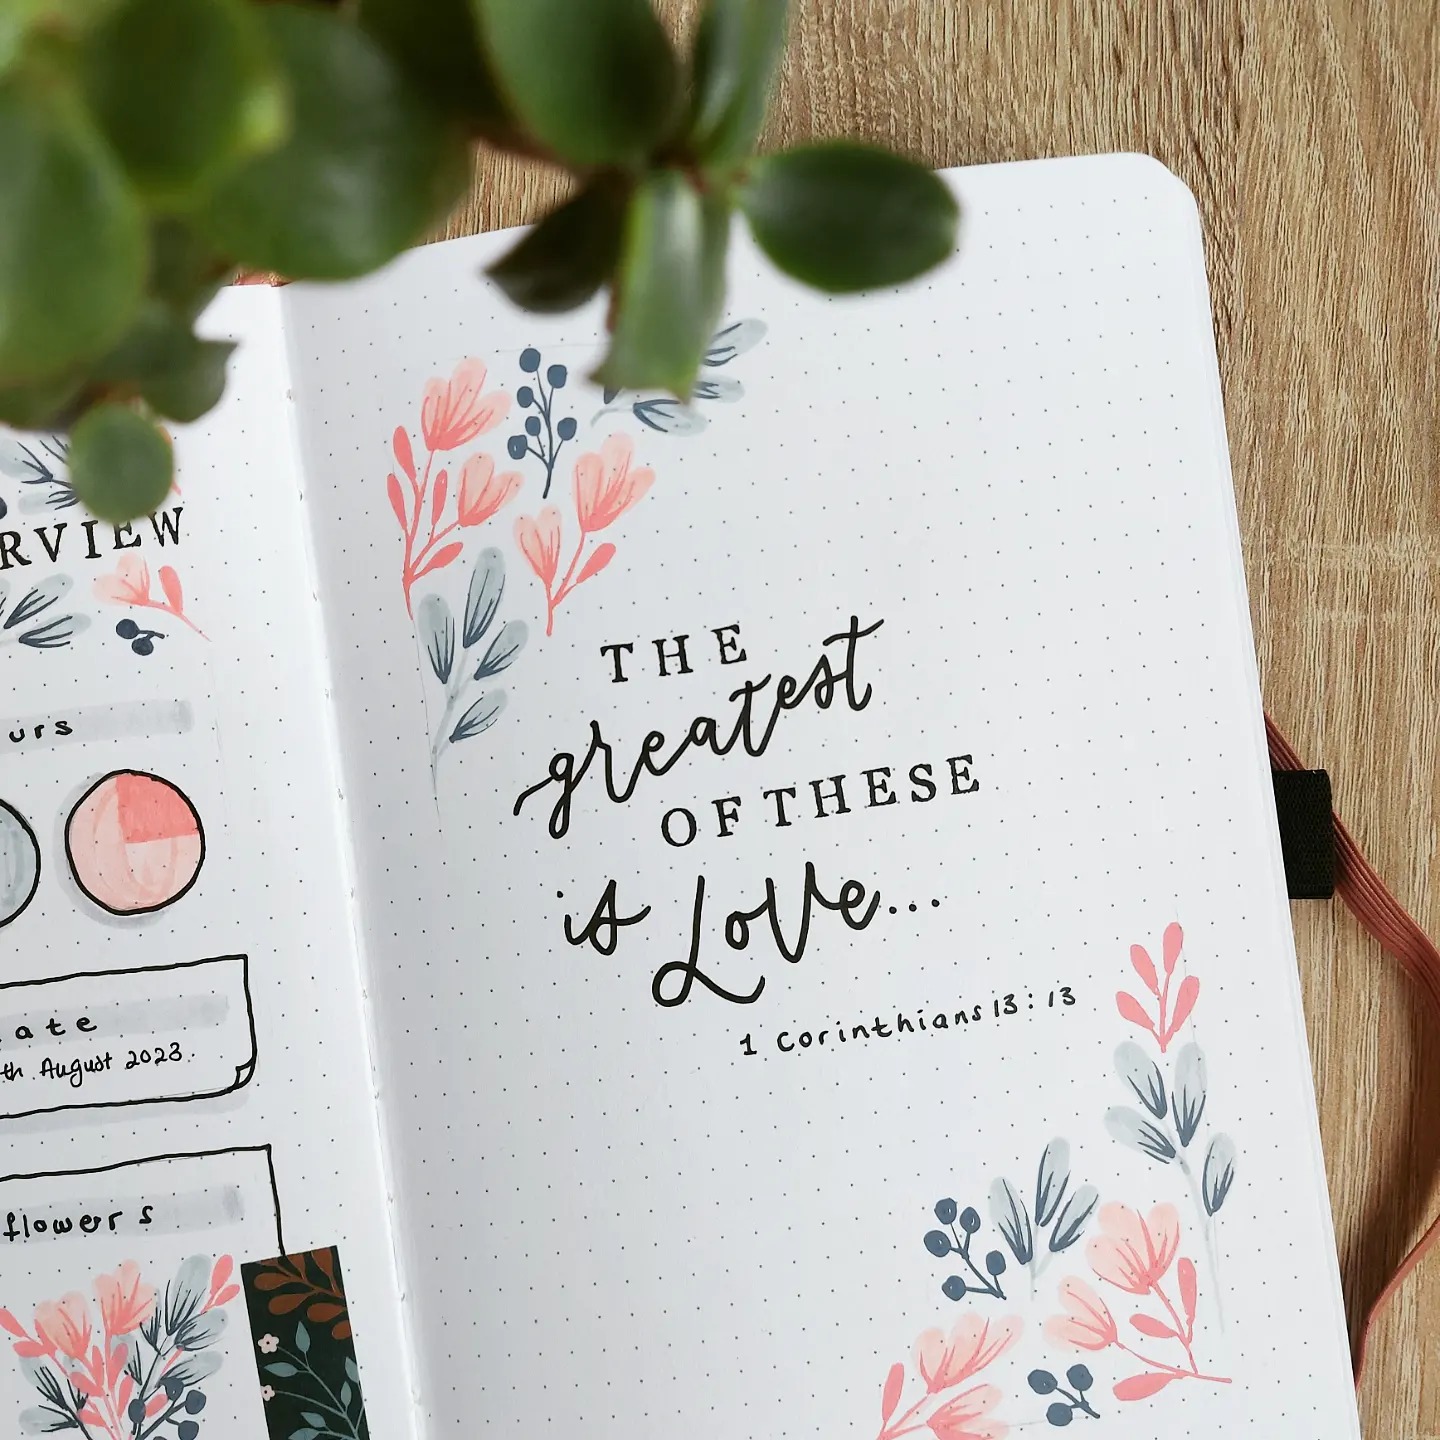 RVIEW
urs
ate
th August 2023.
flowers
THE
greatest
OF THESE
is Love...
1 Corinthians 13:13